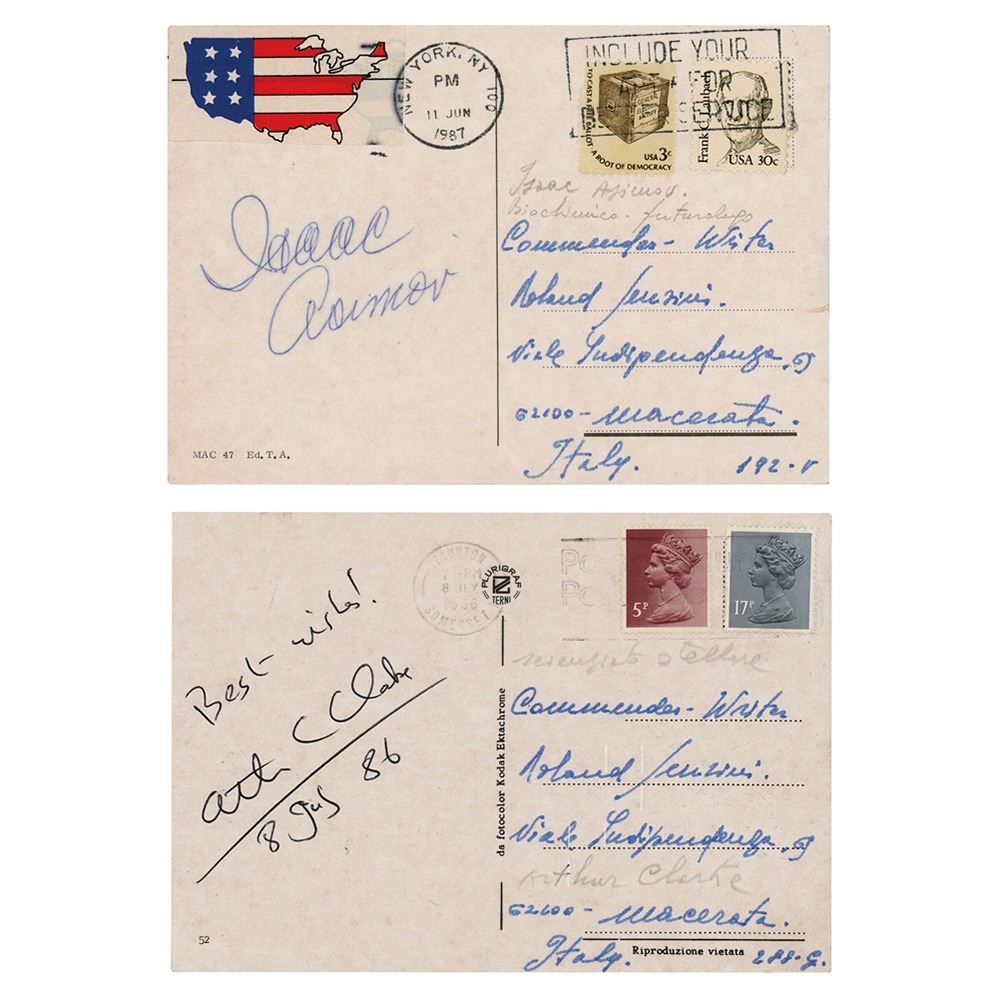 NEW YORK, NY 100
PM
11 JUN
1987
INCLUDE YOUR
FOR
SERVICE
TO CAST A FREE BALLOT · A ROOT OF DEMOCRACY
GENERAL
USA 3c
Frank C. Laubach
USA 30c
Isaac Asimov.
Biochimico - futurologo
Isaac
Asimov
Commender - Writer
Roland Senzini.
Viale Indipendenza, 69
62100 - Macerata.
Italy.
192-V
MAC 47 Ed. T. A.
TAUNTON
PM
8 JLY
1986
SOMERSET
PLURIGRAF
TERNI
5P
17P
Best wishes!
Arthur C Clarke
8 July 86
scienziato stellare
Commender - Writer
Roland Senzini.
Viale Indipendenza, 69
Arthur Clarke
62100 - Macerata.
Italy.
da fotocolor Kodak Ektachrome
52
Riproduzione vietata
288-G.